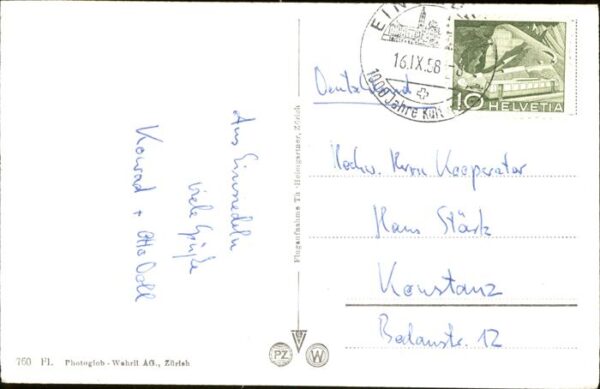 Aus Einsiedeln
viele Grüße
Konrad + Otto Doll
Flugaufnahme Th. Heimgartner, Zürich
760 FL. Photoglob - Wehrli AG., Zürich
PZ W
16.IX.58
1000 Jahre
10 HELVETIA
Deutschland
Hochw. Herrn Kooperator
Hans Stärk
Konstanz
Bodanstr. 12